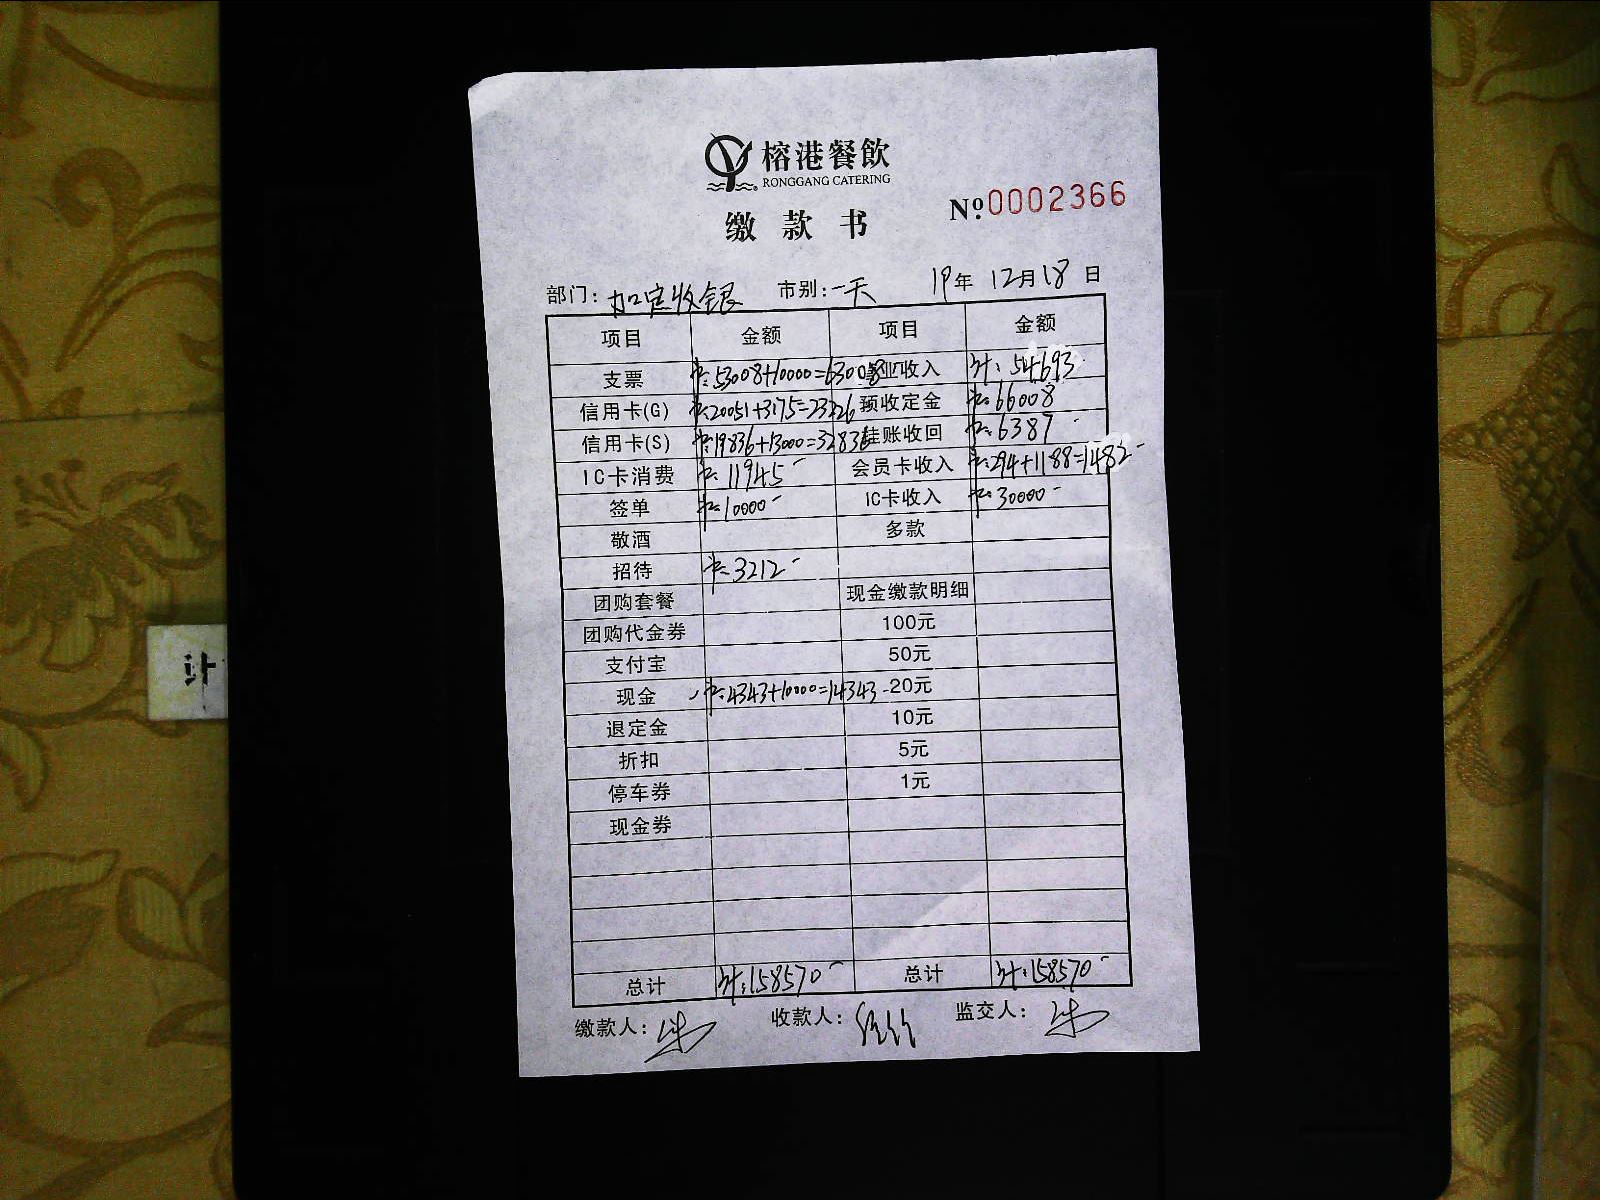 榕港餐飲
RONGGANG CATERING
缴款书
Nº 0002366
部门: 加宴收银 市别: 一天 19年 12月 18日
项目 金额 项目 金额
支票 53008+10000=63008 营业收入 计: 54693
信用卡(G) 20051+3175=23226 预收定金 66008
信用卡(S) 19836+13000=32836 挂账收回 6387
IC卡消费 11945 会员卡收入 294+1188=1482
签单 10000 IC卡收入 30000
敬酒 多款
招待 3212
团购套餐 现金缴款明细
团购代金券 100元
支付宝 50元
现金 4343+10000=14343 20元
退定金 10元
折扣 5元
停车券 1元
现金券
总计 计: 158570 总计 计: 158570
缴款人: 收款人: 监交人:
计